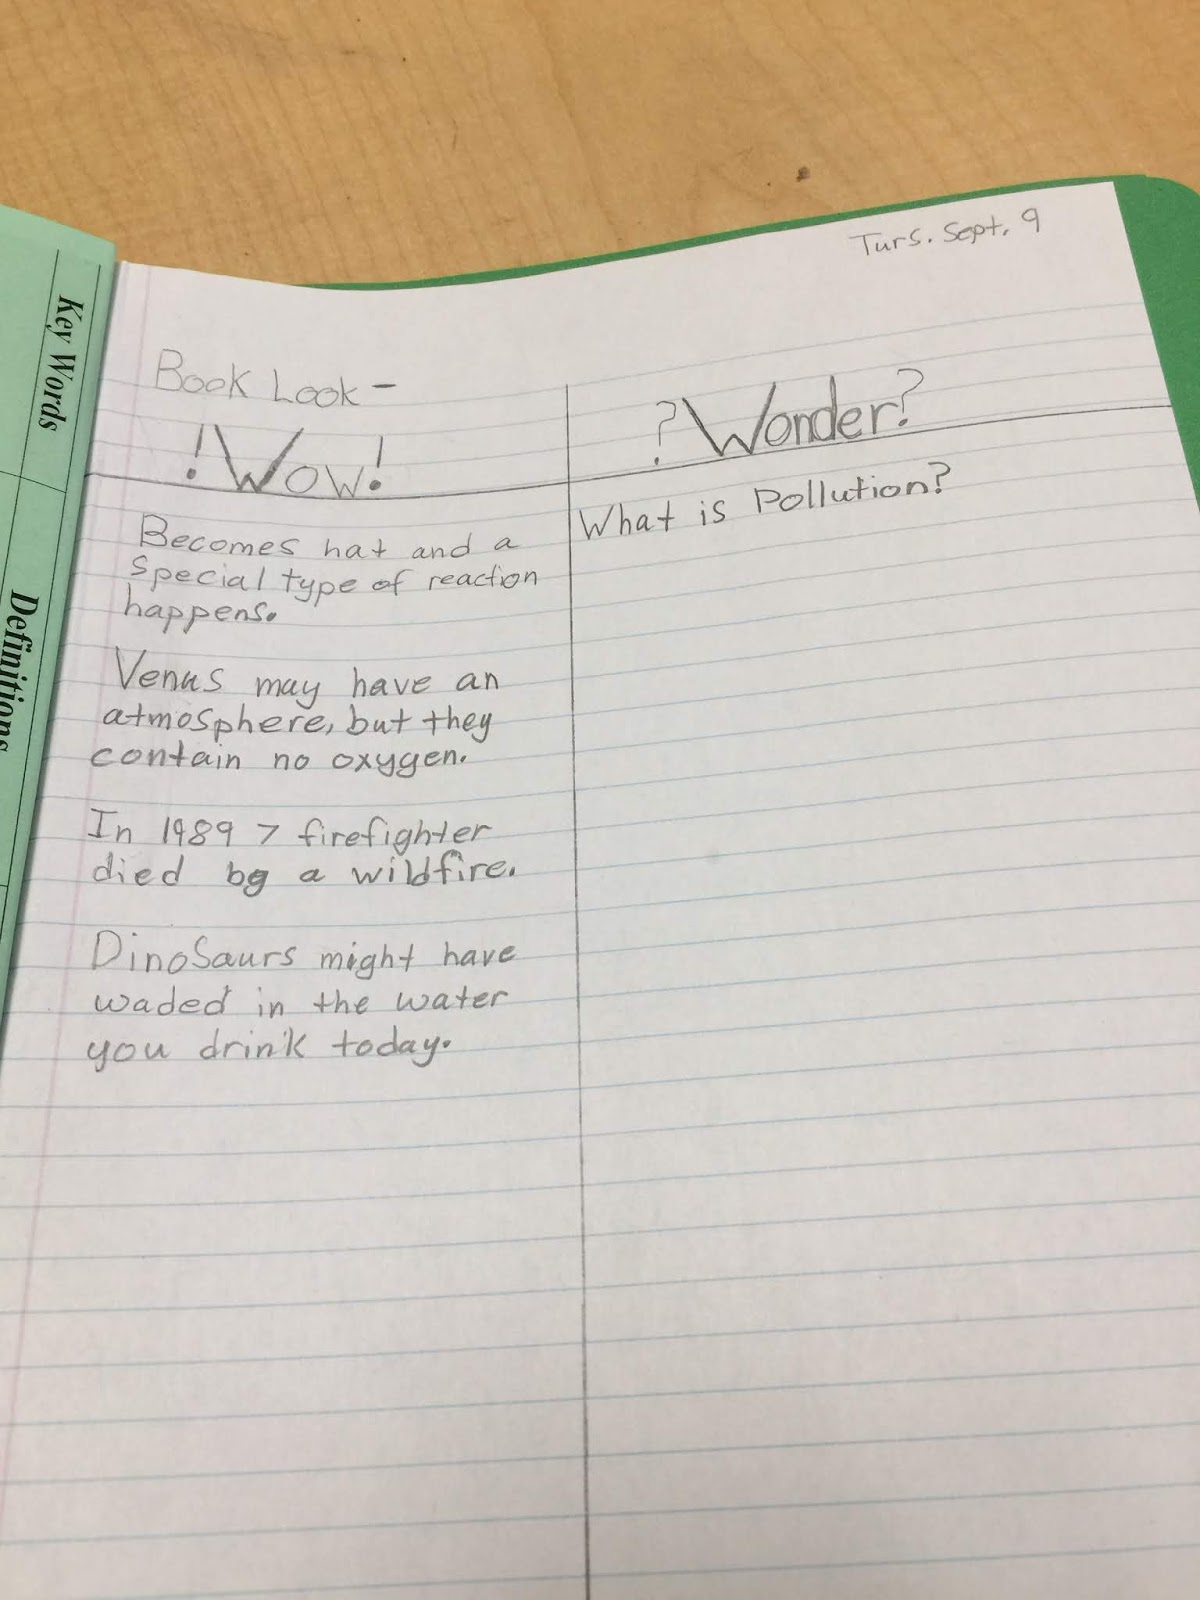 Key Words
Definitions
Turs. Sept. 9
Book Look -
!Wow!
Becomes hat and a
special type of reaction
happens.
Venus may have an
atmosphere, but they
contain no oxygen.
In 1989 7 firefighter
died by a wildfire.
Dinosaurs might have
waded in the water
you drink today.
?Wonder?
What is Pollution?